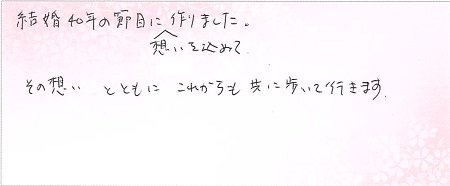 結婚40年の節目に作りました。
想いを込めて
その想い とともに これからも 共に歩いて行きます。